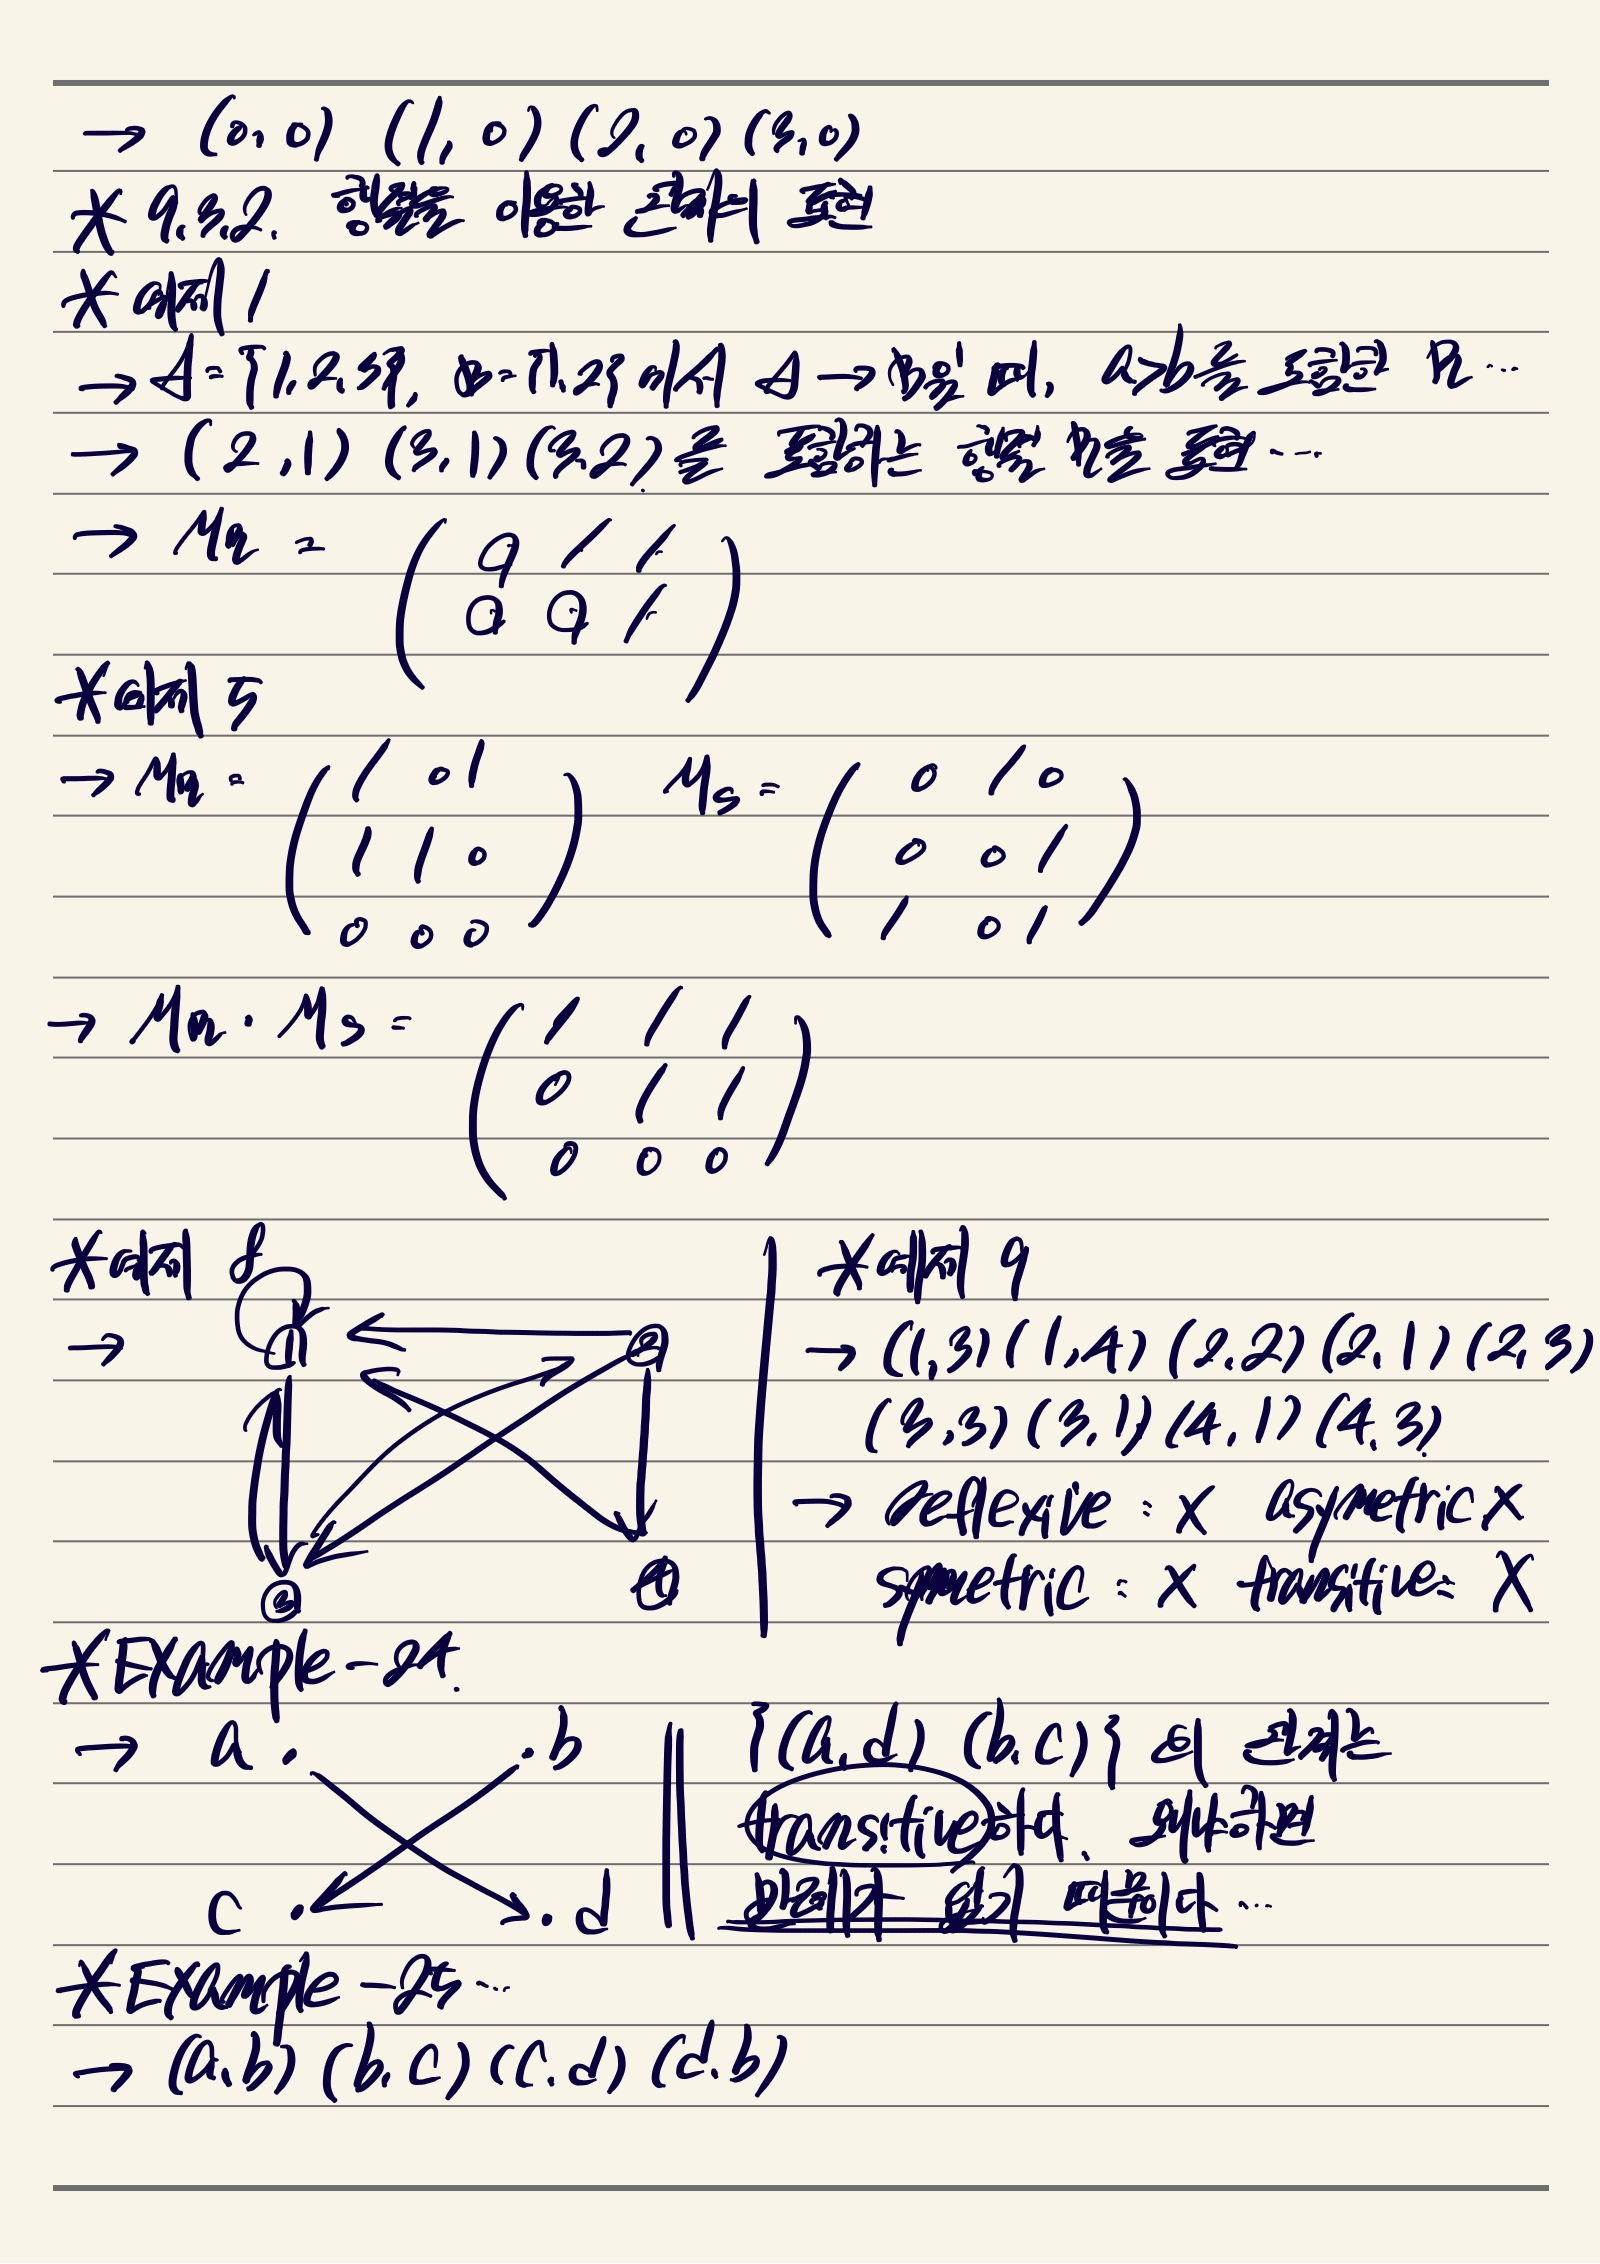 → (0,0) (1,0) (2,0) (3,0)
* 9.3.2. 행렬을 이용한 관계의 표현
* 예제 1
→ A={1,2,3}, B={1,2}에서 A→B일 때, a>b를 포함한 R...
→ (2,1) (3,1) (3,2)를 포함하는 행렬 R을 표현...
→ MR =
0 1 1
0 0 1
* 예제 5
→ MR = Ms =
1 0 1 0 1 0
1 1 0 0 0 1
0 0 0 1 0 1
→ MR · Ms =
1 1 1
0 1 1
0 0 0
* 예제 8
→ ① ②
③ ④
* 예제 9
→ (1,3) (1,4) (2,2) (2,1) (2,3)
(3,3) (3,1) (4,1) (4,3)
→ reflexive : X asymetric X
symetric : X transitive: X
* Example-24.
→ a · · b
c · · d
{(a,d) (b,c)} 의 관계는
transitive하다. 왜냐하면
관계가 없기 때문이다...
* Example-25...
→ (a,b) (b,c) (c,d) (d,b)